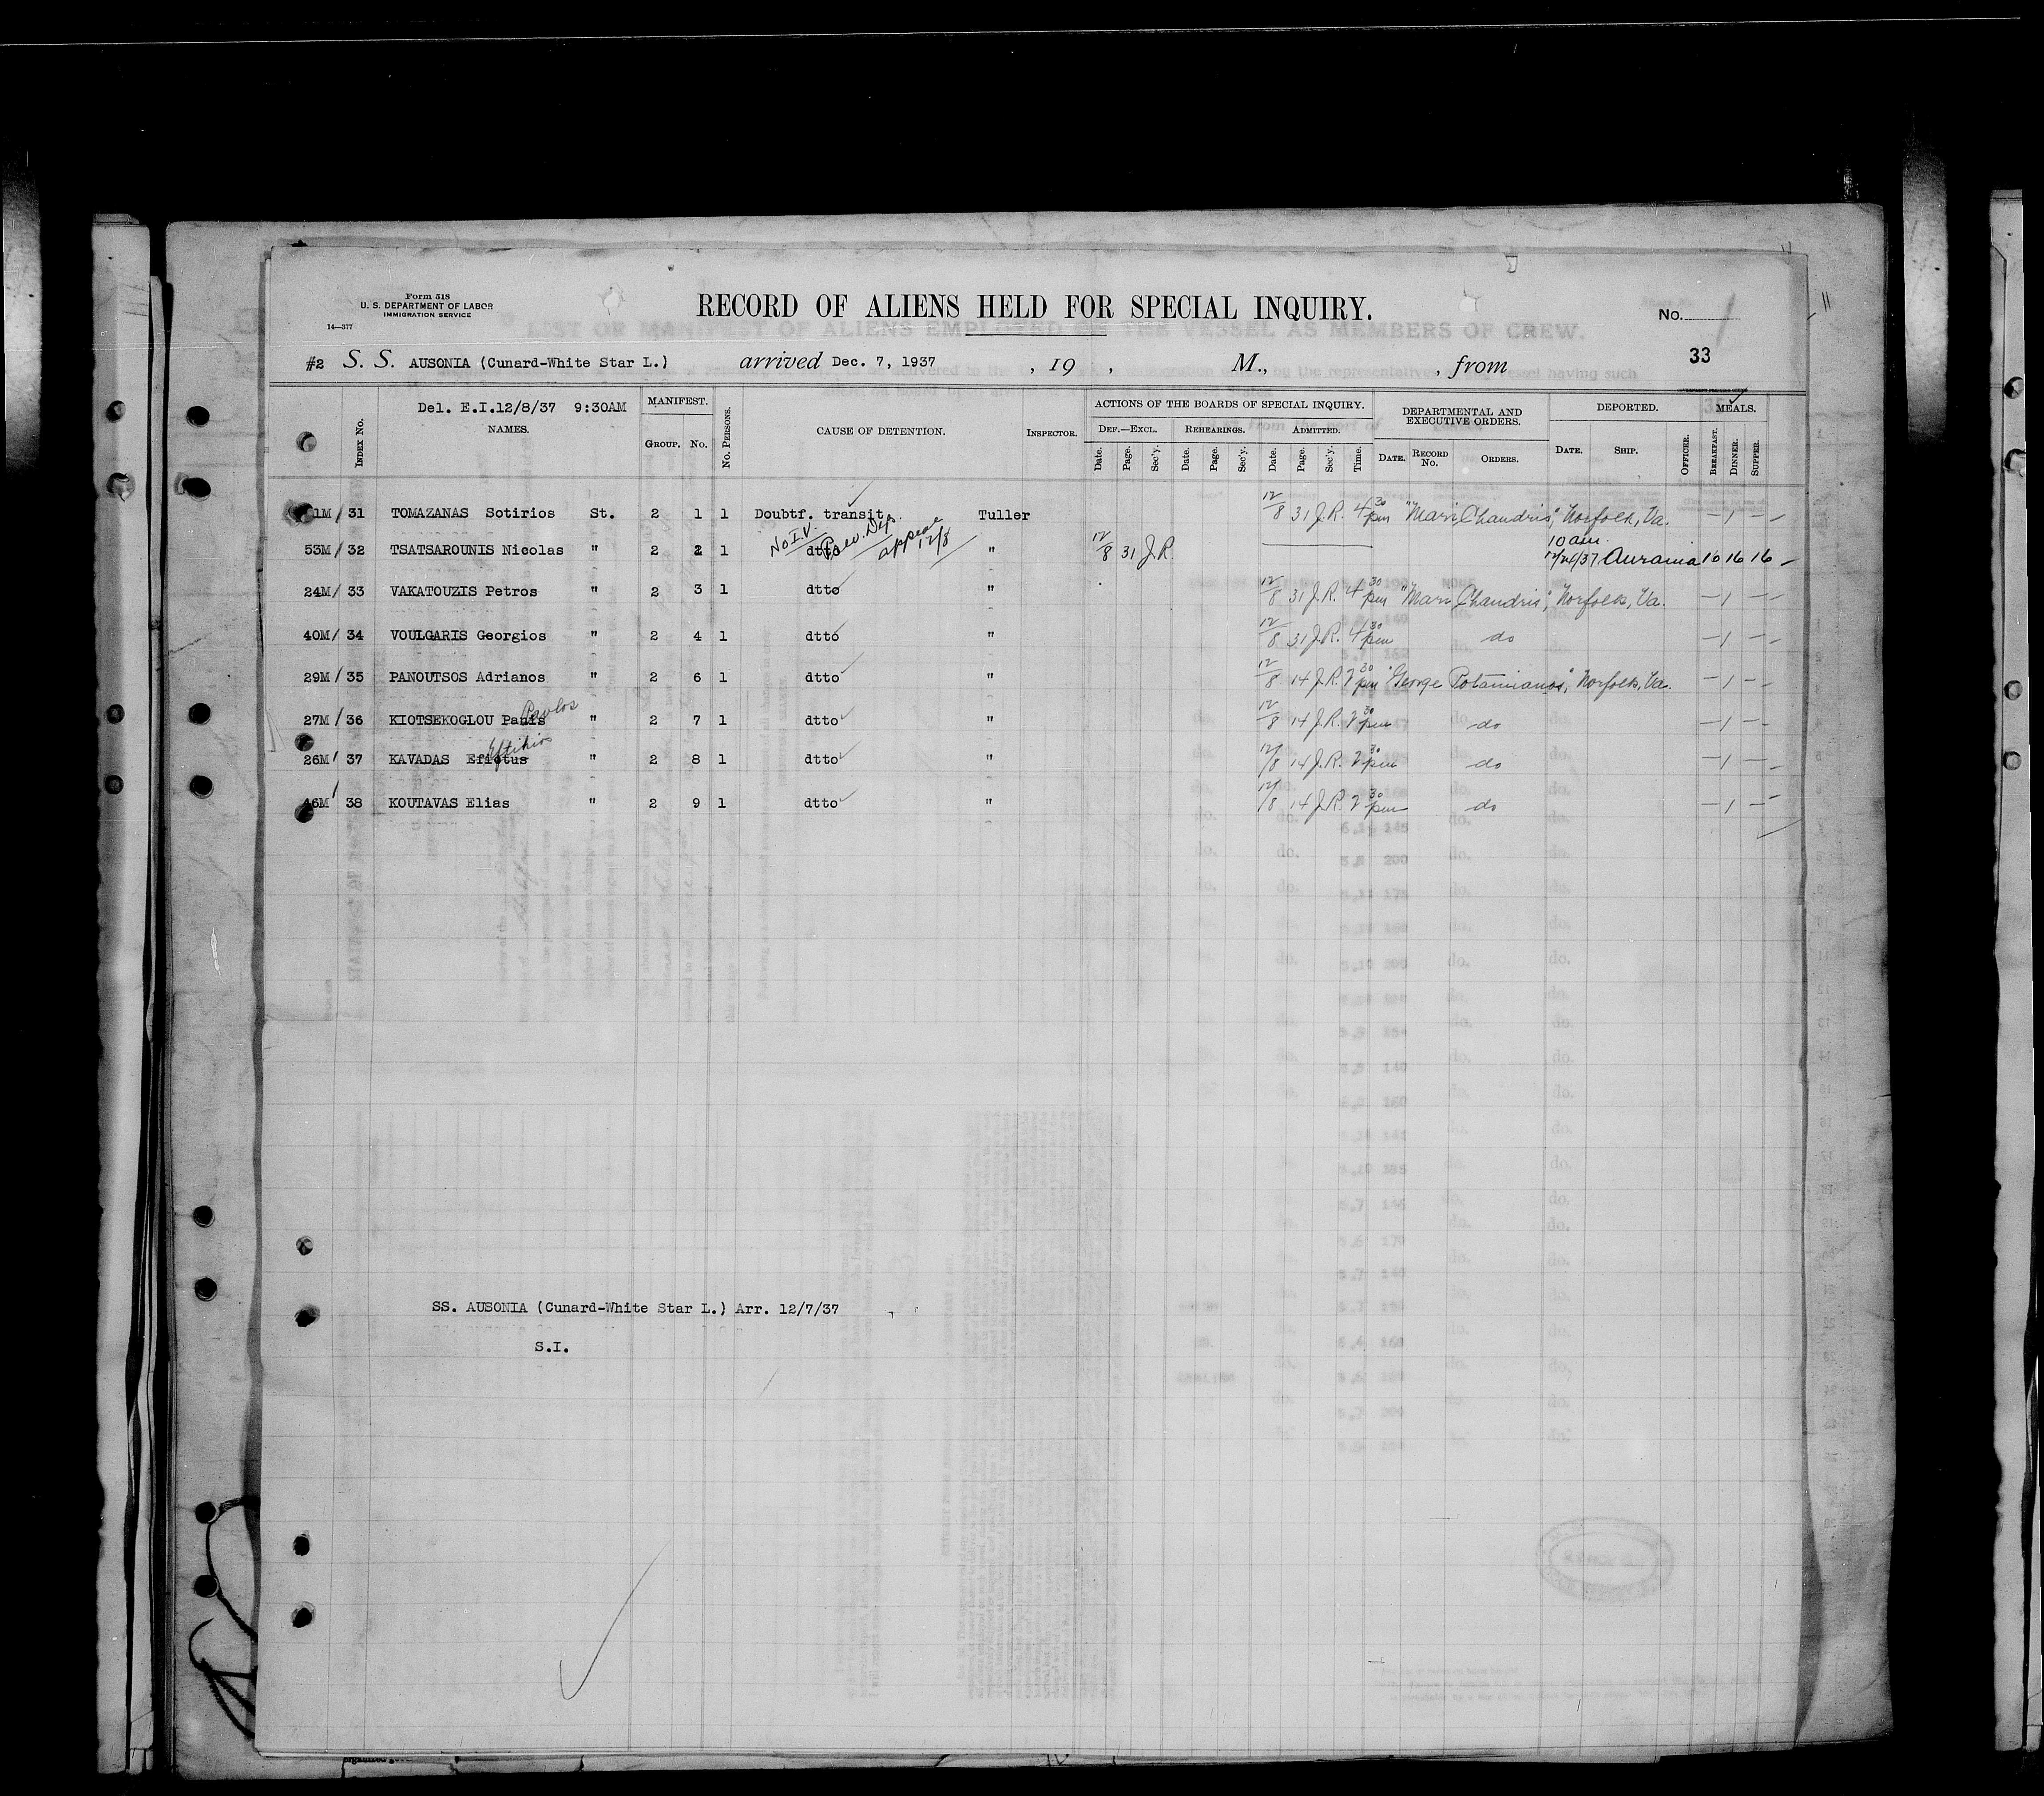 Form 518
U. S. DEPARTMENT OF LABOR
IMMIGRATION SERVICE
14—377
RECORD OF ALIENS HELD FOR SPECIAL INQUIRY.
No. 1
33
#2 S. S. AUSONIA (Cunard-White Star L.) arrived Dec. 7, 1937 , 19 , M., , from
Del. E.I.12/8/37 9:30AM
INDEX No. NAMES. MANIFEST. GROUP. No. No. PERSONS. CAUSE OF DETENTION. INSPECTOR. ACTIONS OF THE BOARDS OF SPECIAL INQUIRY. DEF.—EXCL. Date. Page. Sec'y. REHEARINGS. Date. Page. Sec'y. ADMITTED. Date. Page. Sec'y. Time. DEPARTMENTAL AND EXECUTIVE ORDERS. DATE. RECORD No. ORDERS. DEPORTED. DATE. SHIP. OFFICER. MEALS. BREAKFAST. DINNER. SUPPER.
1M/ 31 TOMAZANAS Sotirios St. 2 1 1 Doubtf. transit Tuller 12/8 31 J.R. 4 30 pm "Mari Chandris", Norfolk, Va. — 1 —
No I.V. Prev. Dep. appeal 12/8
53M/ 32 TSATSAROUNIS Nicolas " 2 2 1 dtto " 12/8 31 J.R. 10 am 12/24/37 Aurania 16 16 16
24M/ 33 VAKATOUZIS Petros " 2 3 1 dtto " 12/8 31 J.R. 4 30 pm "Mari Chandris", Norfolk, Va. — 1 —
40M/ 34 VOULGARIS Georgios " 2 4 1 dtto " 12/8 31 J.R. 4 30 pm do — 1 —
29M/ 35 PANOUTSOS Adrianos " 2 6 1 dtto " 12/8 14 J.R. 2 30 pm "George Potamianos", Norfolk, Va. — 1 —
27M/ 36 KIOTSEKOGLOU Panis Pavlos " 2 7 1 dtto " 12/8 14 J.R. 2 30 pm do — 1 —
26M/ 37 KAVADAS Efiotus Eftihios " 2 8 1 dtto " 12/8 14 J.R. 2 30 pm do — 1 —
46M/ 38 KOUTAVAS Elias " 2 9 1 dtto " 12/8 14 J.R. 2 30 pm do — 1 —
SS. AUSONIA (Cunard-White Star L.) Arr. 12/7/37
S.I.